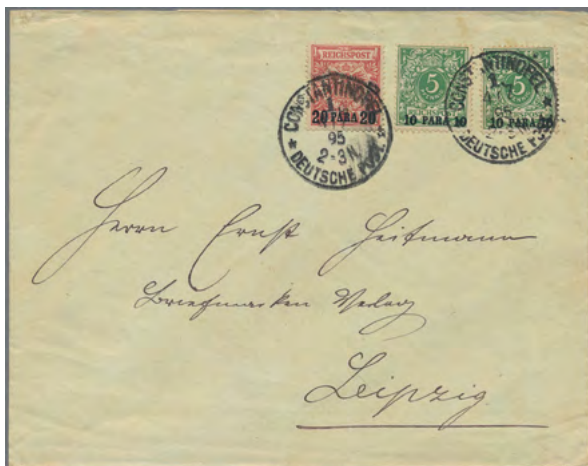 REICHSPOST
20 PARA 20
5
REICHSPOST
10 PARA 10
5
10 PARA 10
CONSTANTINOPEL
1
95
2-3N.
* DEUTSCHE POST. *
CONSTANTINOPEL
1
95
2-3N.
* DEUTSCHE POST. *
Herrn Ernst Heitmann
Briefmarken Verlag
Leipzig